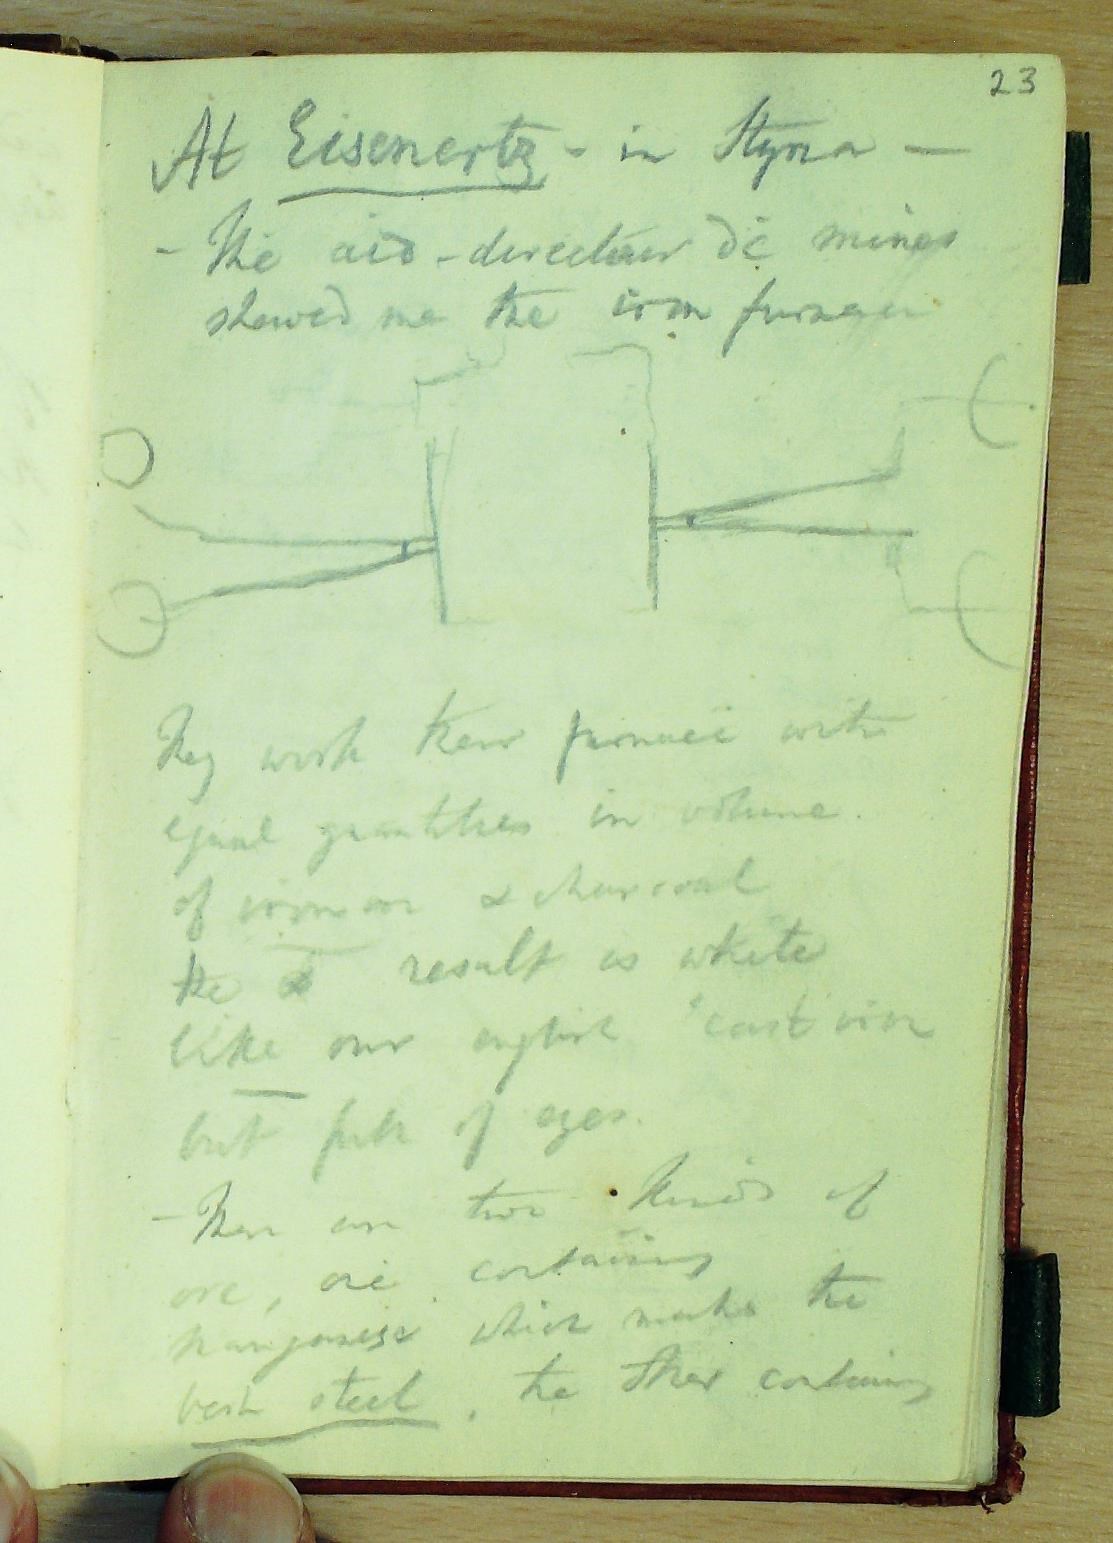 23
At Eisenertz - in Styria —
- The aid-directeur de mines
shewed me the iron furnace
They work their furnace with
equal quantities in volume.
of iron ore & charcoal
the result is white
like our english cast iron
but full of eyes.
- There are two kinds of
ore, one containing
manganese which makes the
best steel, the other containing